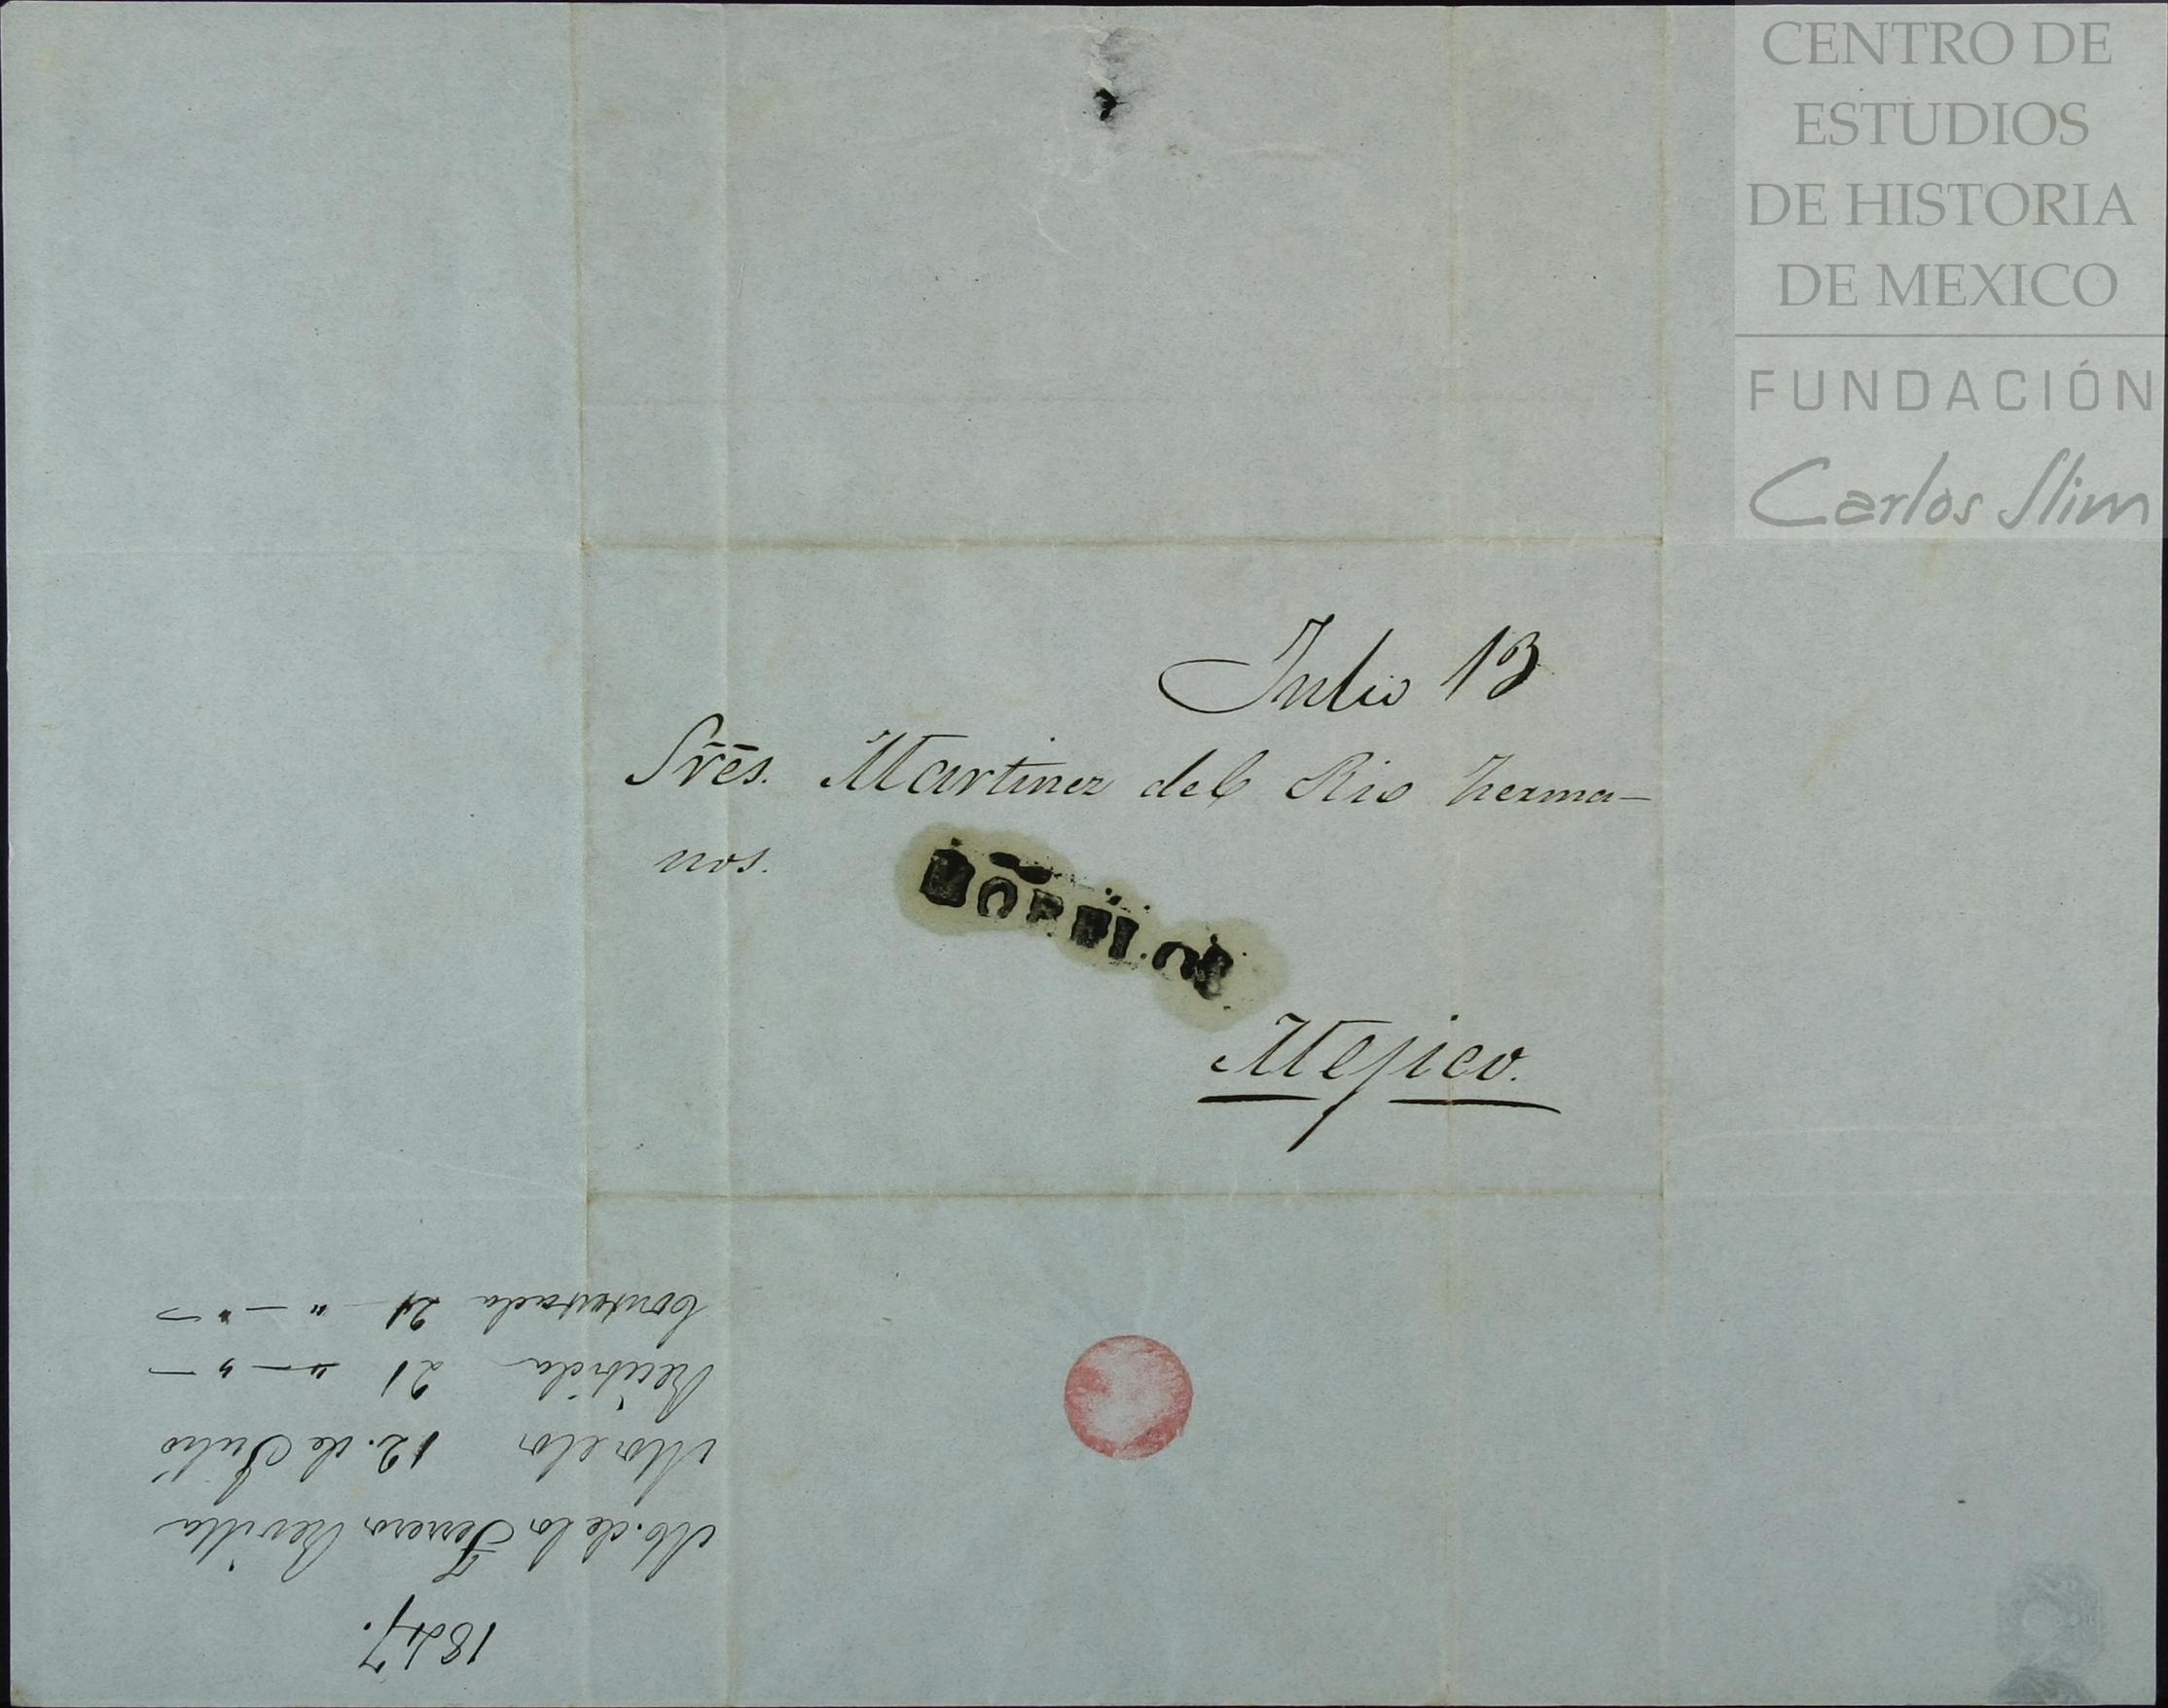 CENTRO DE
ESTUDIOS
DE HISTORIA
DE MEXICO
FUNDACIÓN
Carlos Slim
Julio 13
Sres. Martinez del Rio herma-
nos.
MORELOS
Mejico.
1847.
M. de la Revilla
Morelos 12. de Julio
Recibida 21 " — " —
Contestada 21 — " — " —